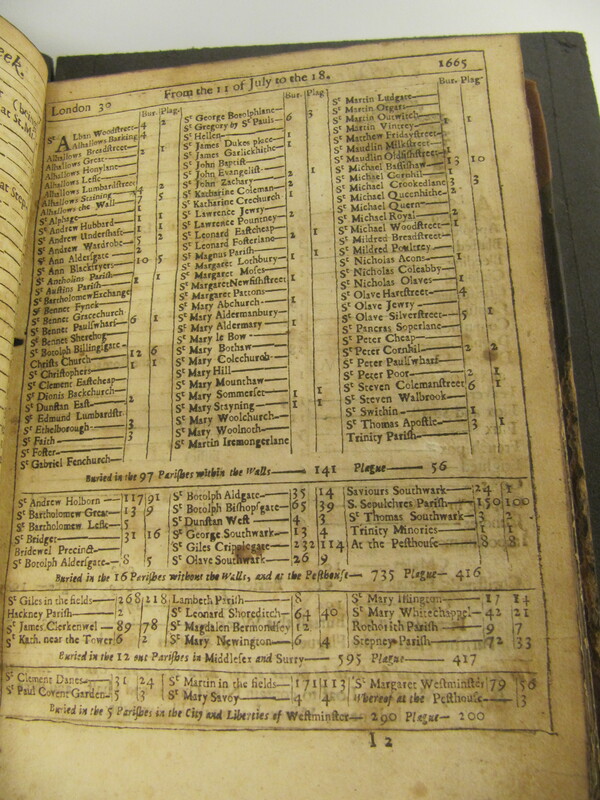 London 30 From the 11 of July to the 18. 1665
Bur. Plag.
Sᵗ ALban Woodstreet— 4 2
Alhallows Barking— 4
Alhallows Breadstreet— 2 1
Alhallows Great—
Alhallows Honylane—
Alhallows Lesse—
Alhallows Lumbardstreet
Alhallows Staining—
Alhallows the Wall—
Sᵗ Alphage—
Sᵗ Andrew Hubbard—
Sᵗ Andrew Undershaft—
Sᵗ Andrew Wardrobe—
Sᵗ Ann Aldersgate—
Sᵗ Ann Blackfryers— 10 5
Sᵗ Antholins Parish—
Sᵗ Austins Parish—
Sᵗ Bartholomew Exchange
Sᵗ Bennet Fynck—
Sᵗ Bennet Gracechurch
Sᵗ Bennet Paulswharf— 6 1
Sᵗ Bennet Sherehog
Sᵗ Botolph Billingsgate—
Christs Church— 12 6
Sᵗ Christophers— 1 1
Sᵗ Clement Eastcheap—
Sᵗ Dionis Backchurch—
Sᵗ Dunstan East— 2
Sᵗ Edmund Lumbardstr.
Sᵗ Ethelborough— 3
Sᵗ Faith— 3
Sᵗ Foster—
Sᵗ Gabriel Fenchurch—
Bur. Plag
Sᵗ George Botolphlane—
Sᵗ Gregory by Sᵗ Pauls— 6 3
Sᵗ Hellen— 1
Sᵗ James Dukes place— 1
Sᵗ James Garlickhithe—
Sᵗ John Baptist—
Sᵗ John Evangelist—
Sᵗ John Zachary— 2
Sᵗ Katharine Coleman— 2
Sᵗ Katharine Crechurch 1
Sᵗ Lawrence Jewry—
Sᵗ Lawrence Pountney—
Sᵗ Leonard Eastcheap 1
Sᵗ Leonard Fosterlane— 2
Sᵗ Magnus Parish—
Sᵗ Margaret Lothbury—
Sᵗ Margaret Moses—
Sᵗ Margaret Newfishstreet
Sᵗ Margaret Pattons—
Sᵗ Mary Abchurch—
Sᵗ Mary Aldermanbury—
Sᵗ Mary Aldermary—
Sᵗ Mary le Bow—
Sᵗ Mary Bothaw—
Sᵗ Mary Colechurch—
Sᵗ Mary Hill—
Sᵗ Mary Mounthaw—
Sᵗ Mary Sommerset— 1 1
Sᵗ Mary Stayning— 1 1
Sᵗ Mary Woolchurch—
Sᵗ Mary Woolnoth—
Sᵗ Martin Iremongerlane
Bur. Plag
Sᵗ Martin Ludgate—
Sᵗ Martin Orgars—
Sᵗ Martin Outwitch—
Sᵗ Martin Vintrey— 1 1
Sᵗ Matthew Fridaystreet—
Sᵗ Maudlin Milkstreet—
Sᵗ Maudlin Oldfishstreet—
Sᵗ Michael Bassishaw— 13 10
Sᵗ Michael Cornhil— 1
Sᵗ Michael Crookedlane 3 3
Sᵗ Michael Queenhithe— 2
Sᵗ Michael Quern—
Sᵗ Michael Royal— 2
Sᵗ Michael Woodstreet— 1
Sᵗ Mildred Breadstreet—
Sᵗ Mildred Poultrey—
Sᵗ Nicholas Acons— 1
Sᵗ Nicholas Coleabby—
Sᵗ Nicholas Olaves— 1
Sᵗ Olave Hartstreet— 4
Sᵗ Olave Jewry—
Sᵗ Olave Silverstreet— 5 1
Sᵗ Pancras Soperlane—
Sᵗ Peter Cheap—
Sᵗ Peter Cornhil— 2 2
Sᵗ Peter Paulswharf—
Sᵗ Peter Poor— 2 1
Sᵗ Steven Colemanstreet 6 1
Sᵗ Steven Walbrook—
Sᵗ Swithin— 1
Sᵗ Thomas Apostle— 3 1
Trinity Parish—
Buried in the 97 Parishes within the Walls— 141 Plague— 56
Sᵗ Andrew Holborn— 117 91
Sᵗ Bartholomew Great— 13 9
Sᵗ Bartholomew Lesse— 5
Sᵗ Bridget— 31 16
Bridewel Precinct—
Sᵗ Botolph Aldersgate— 8 5
Sᵗ Botolph Aldgate— 35 14
Sᵗ Botolph Bishopsgate— 65 39
Sᵗ Dunstan West— 4 3
Sᵗ George Southwark— 13 4
Sᵗ Giles Cripplegate— 232 114
Sᵗ Olave Southwark— 26 9
Saviours Southwark— 24 1
S. Sepulchres Parish— 150 100
Sᵗ Thomas Southwark— 3 2
Trinity Minories— 1 1
At the Pesthouse— 8 8
Buried in the 16 Parishes without the Walls, and at the Pesthouse— 735 Plague— 416
Sᵗ Giles in the fields— 268 218
Hackney Parish— 2
Sᵗ James Clerkenwel— 89 78
Sᵗ Kath. near the Tower 6 2
Lambeth Parish— 8
Sᵗ Leonard Shoreditch— 64 40
Sᵗ Magdalen Bermondsey 12
Sᵗ Mary Newington— 6 4
Sᵗ Mary Islington— 17 14
Sᵗ Mary Whitechappel— 42 21
Rothorith Parish— 9 7
Stepney Parish— 72 33
Buried in the 12 out Parishes in Middlesex and Surry— 595 Plague— 417
Sᵗ Clement Danes— 31 24
Sᵗ Paul Covent Garden— 5 3
Sᵗ Martin in the fields— 171 113
Sᵗ Mary Savoy— 4 4
Sᵗ Margaret Westminster 79 56
Whereof at the Pesthouse— 3
Buried in the 5 Parishes in the City and Liberties of Westminster— 290 Plague— 200
I 2